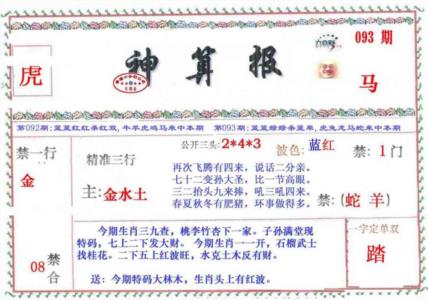 093 期
虎
神算报
马
第092期:蓝蓝红红杀红双,牛羊虎鸡马来中本期
第093期:蓝蓝绿绿杀蓝单,虎兔龙马蛇来中本期
禁一行
金
精准三行
主:金水土
公开三头:2*4*3
波色:蓝红
禁:1门
再次飞腾有四来,说话二分亲。
七十二变孙大圣,比一节高眼。
三二抬头九来捧,吼三吼四来。
春夏秋冬有肥猪,环事做得多。
禁:(蛇 羊)
08
禁
合
今期生肖三九查,桃李竹杏下一家。子孙满堂现
特码,七上二下发大财。 今期生肖一一开,石榴武士
找桂花。二下五上红波旺,水克土木反有财。
送:今期特码大林木,生肖头上有红波。
一字定单双
踏